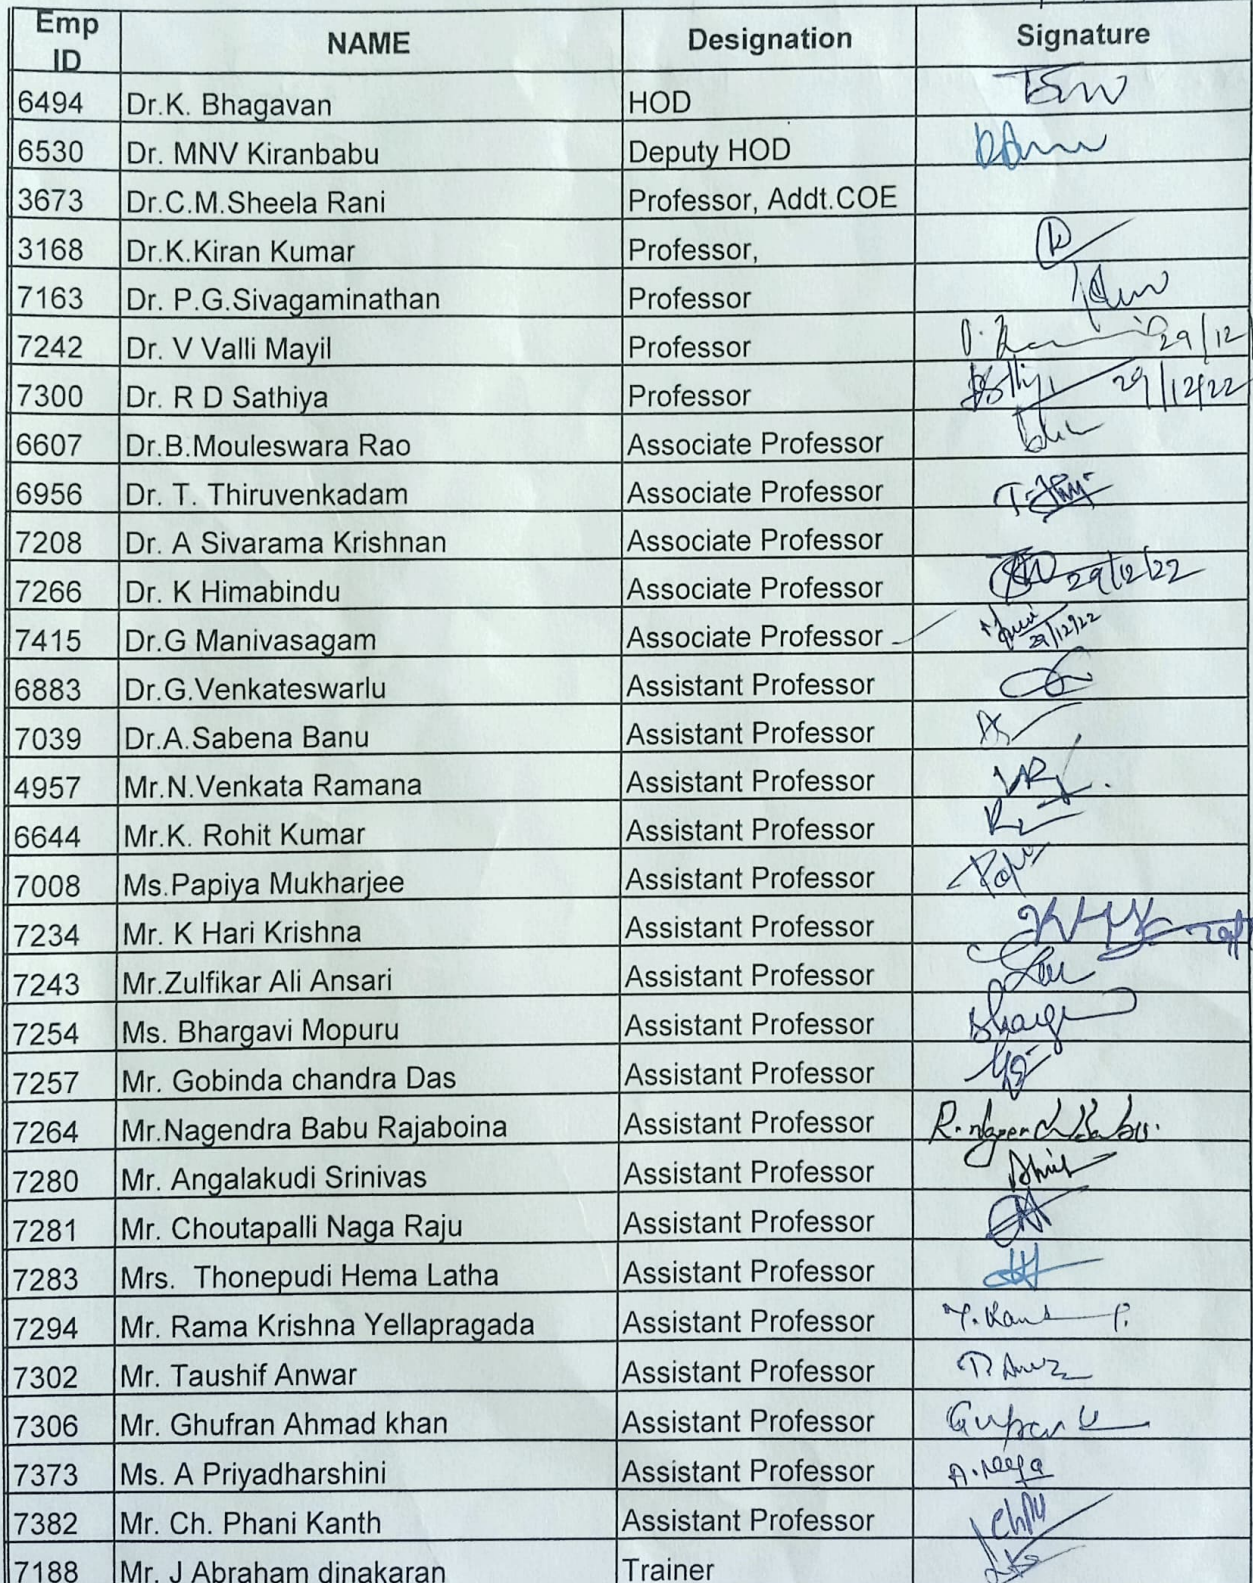 Emp ID NAME Designation Signature
6494 Dr.K. Bhagavan HOD
6530 Dr. MNV Kiranbabu Deputy HOD
3673 Dr.C.M.Sheela Rani Professor, Addt.COE
3168 Dr.K.Kiran Kumar Professor,
7163 Dr. P.G.Sivagaminathan Professor
7242 Dr. V Valli Mayil Professor 29/12
7300 Dr. R D Sathiya Professor 29/12/22
6607 Dr.B.Mouleswara Rao Associate Professor
6956 Dr. T. Thiruvenkadam Associate Professor
7208 Dr. A Sivarama Krishnan Associate Professor
7266 Dr. K Himabindu Associate Professor 29/12/22
7415 Dr.G Manivasagam Associate Professor 29/12/22
6883 Dr.G.Venkateswarlu Assistant Professor
7039 Dr.A.Sabena Banu Assistant Professor
4957 Mr.N.Venkata Ramana Assistant Professor
6644 Mr.K. Rohit Kumar Assistant Professor
7008 Ms.Papiya Mukharjee Assistant Professor
7234 Mr. K Hari Krishna Assistant Professor
7243 Mr.Zulfikar Ali Ansari Assistant Professor
7254 Ms. Bhargavi Mopuru Assistant Professor
7257 Mr. Gobinda chandra Das Assistant Professor
7264 Mr.Nagendra Babu Rajaboina Assistant Professor
7280 Mr. Angalakudi Srinivas Assistant Professor
7281 Mr. Choutapalli Naga Raju Assistant Professor
7283 Mrs. Thonepudi Hema Latha Assistant Professor
7294 Mr. Rama Krishna Yellapragada Assistant Professor
7302 Mr. Taushif Anwar Assistant Professor
7306 Mr. Ghufran Ahmad khan Assistant Professor
7373 Ms. A Priyadharshini Assistant Professor
7382 Mr. Ch. Phani Kanth Assistant Professor
7188 Mr. J Abraham dinakaran Trainer